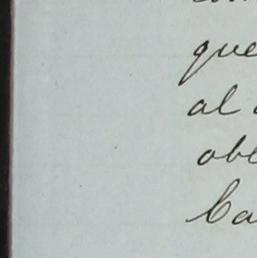 que
al
obe
Ca